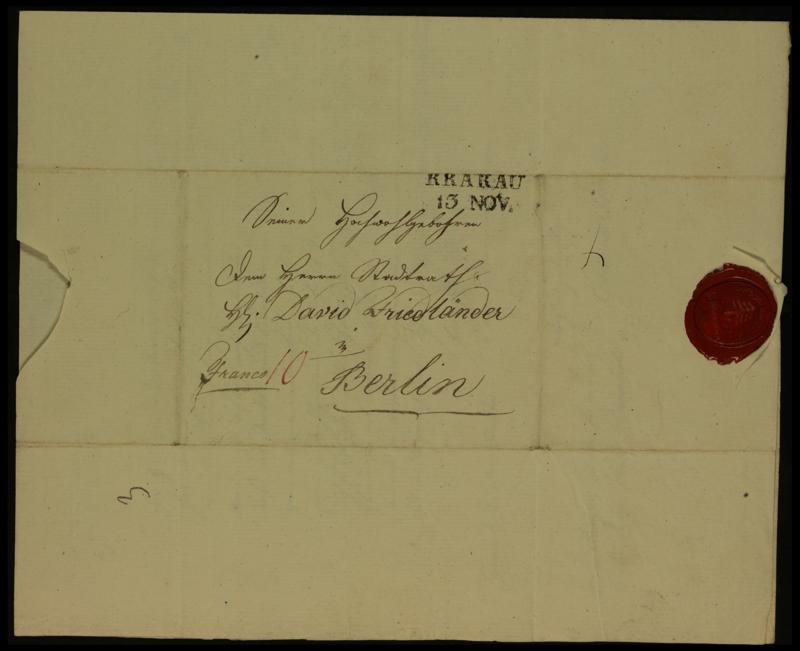 KRAKAU
13 NOV.
Seiner Hochwohlgebohren
Dem Herrn Stadtrath
David Friedländer
Franco 10
Berlin
3